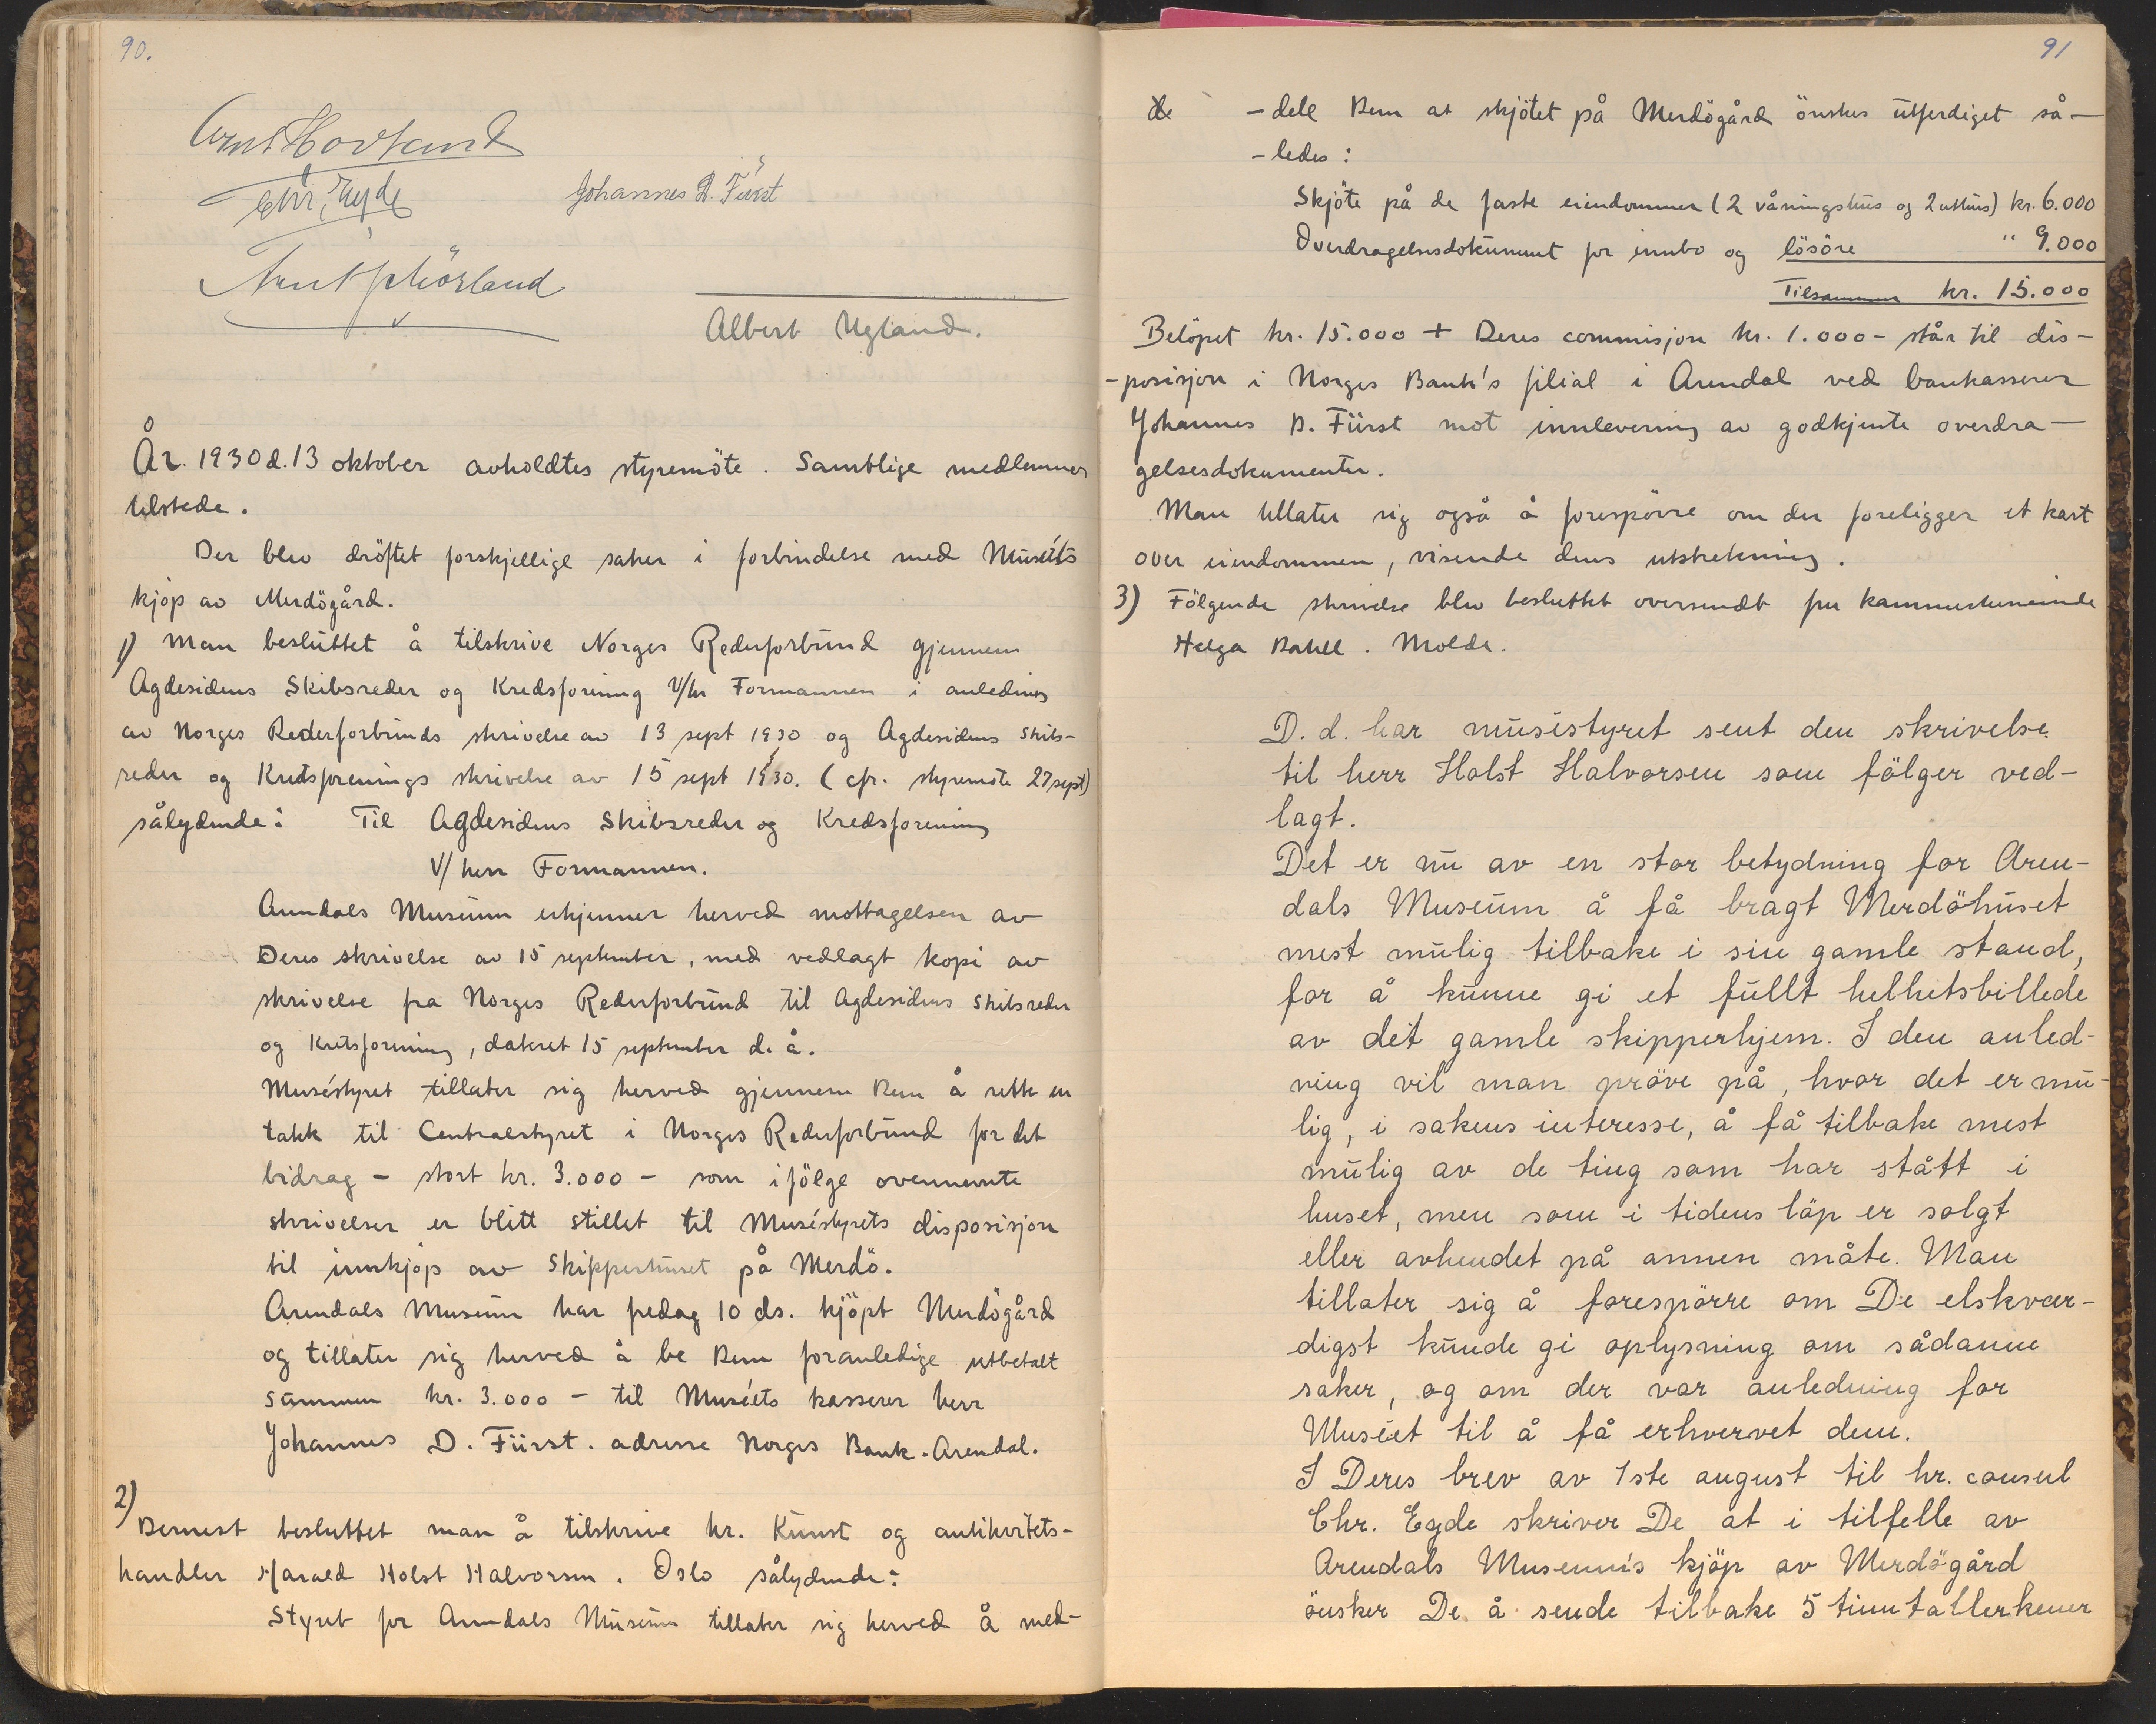 90.
Arnt Hovland
Chr. Eyde
Johannes D. Fürst
Arnt J Mörland
Albert Ugland.
År. 1930 d. 13 oktober avholdtes styremöte. Samtlige medlemmer
tilstede.
Der blev dröftet forskjellige saker i forbindelse med Muséets
kjöp av Merdögård.
1) Man besluttet å tilskrive Norges Rederforbund gjennem
Agdesidens Skibsreder og Kredsforening v/hr Formannen i anledning
av Norges Rederforbunds skrivelse av 13 sept 1930 og Agdesidens Skibs-
reder og Kretsforenings skrivelse av 15 sept 1930. (cfr. styremöte 27 sept)
sålydende: Til Agdesidens Skibsreder og Kredsforening
V/ herr Formannen.
Arendals Museum erkjenner herved mottagelsen av
Deres skrivelse av 15 september, med vedlagt kopi av
skrivelse fra Norges Rederforbund til Agdesidens Skibsreder
og Kretsforening, dateret 15 september d. å.
Muséstyret tillater sig herved gjennem Dem å rette en
takk til Centralstyret i Norges Rederforbund for det
bidrag - stort kr. 3.000 - som ifölge ovennevnte
skrivelser er blitt stillet til Muséstyrets disposisjon
til innkjöp av Skipperhuset på Merdö.
Arendals Museum har fredag 10 ds. kjöpt Merdögård
og tillater sig herved å be Dem foranledige utbetalt
summen kr. 3.000 - til Muséets kasserer herr
Johannes D. Fürst. adresse Norges Bank. Arendal.
2)
Dernest besluttet man å tilskrive hr. Kunst og antikvitets-
handler Harald Holst Halvorsen. Oslo sålydende:
Styret for Arendals Museum tillater sig herved å med-
91
de -dele Dem at skjötet på Merdögård önskes utferdiget så-
-ledes:
Skjöte på de faste eiendommer (2 våningshus og 2 uthus) kr. 6.000
Overdragelsesdokument for innbo og lösöre " 9.000
Tilsammen kr. 15.000
Belöpet kr. 15.000 + Deres commisjon kr. 1.000 - står til dis-
-posisjon i Norges Bank's filial i Arendal ved bankkasserer
Johannes D. Fürst mot innlevering av godkjente overdra-
gelsesdokumenter.
Man tillater sig også å forespörre om der foreligger et kart
over eiendommen, visende dens utstrekning.
3) Fölgende skrivelse blev besluttet oversendt fru kammerherreinde
Helga . Molde.
D. d. har muséstyret sent den skrivelse
til herr Holst Halvorsen som fölger ved-
lagt.
Det er nu av en stor betydning for Aren-
dals Museum å få bragt Merdöhuset
mest mulig tilbake i sin gamle stand,
for å kunne gi et fullt helhetsbillede
av det gamle skipperhjem. I den anled-
ning vil man pröve på, hvor det er mu-
lig, i sakens interesse, å få tilbake mest
mulig av de ting som har stått i
huset, men som i tidens löp er solgt
eller avhendet på annen måte. Man
tillater sig å forespörre om De elskvær-
digst kunde gi oplysning om sådanne
saker, og om der var anledning for
Muséet til å få erhvervet dem.
I Deres brev av 1ste august til hr. consul
Chr. Eyde skriver De at i tilfelle av
Arendals Museum's kjöp av Merdögård
önsker De å sende tilbake 5 tinntallerkener